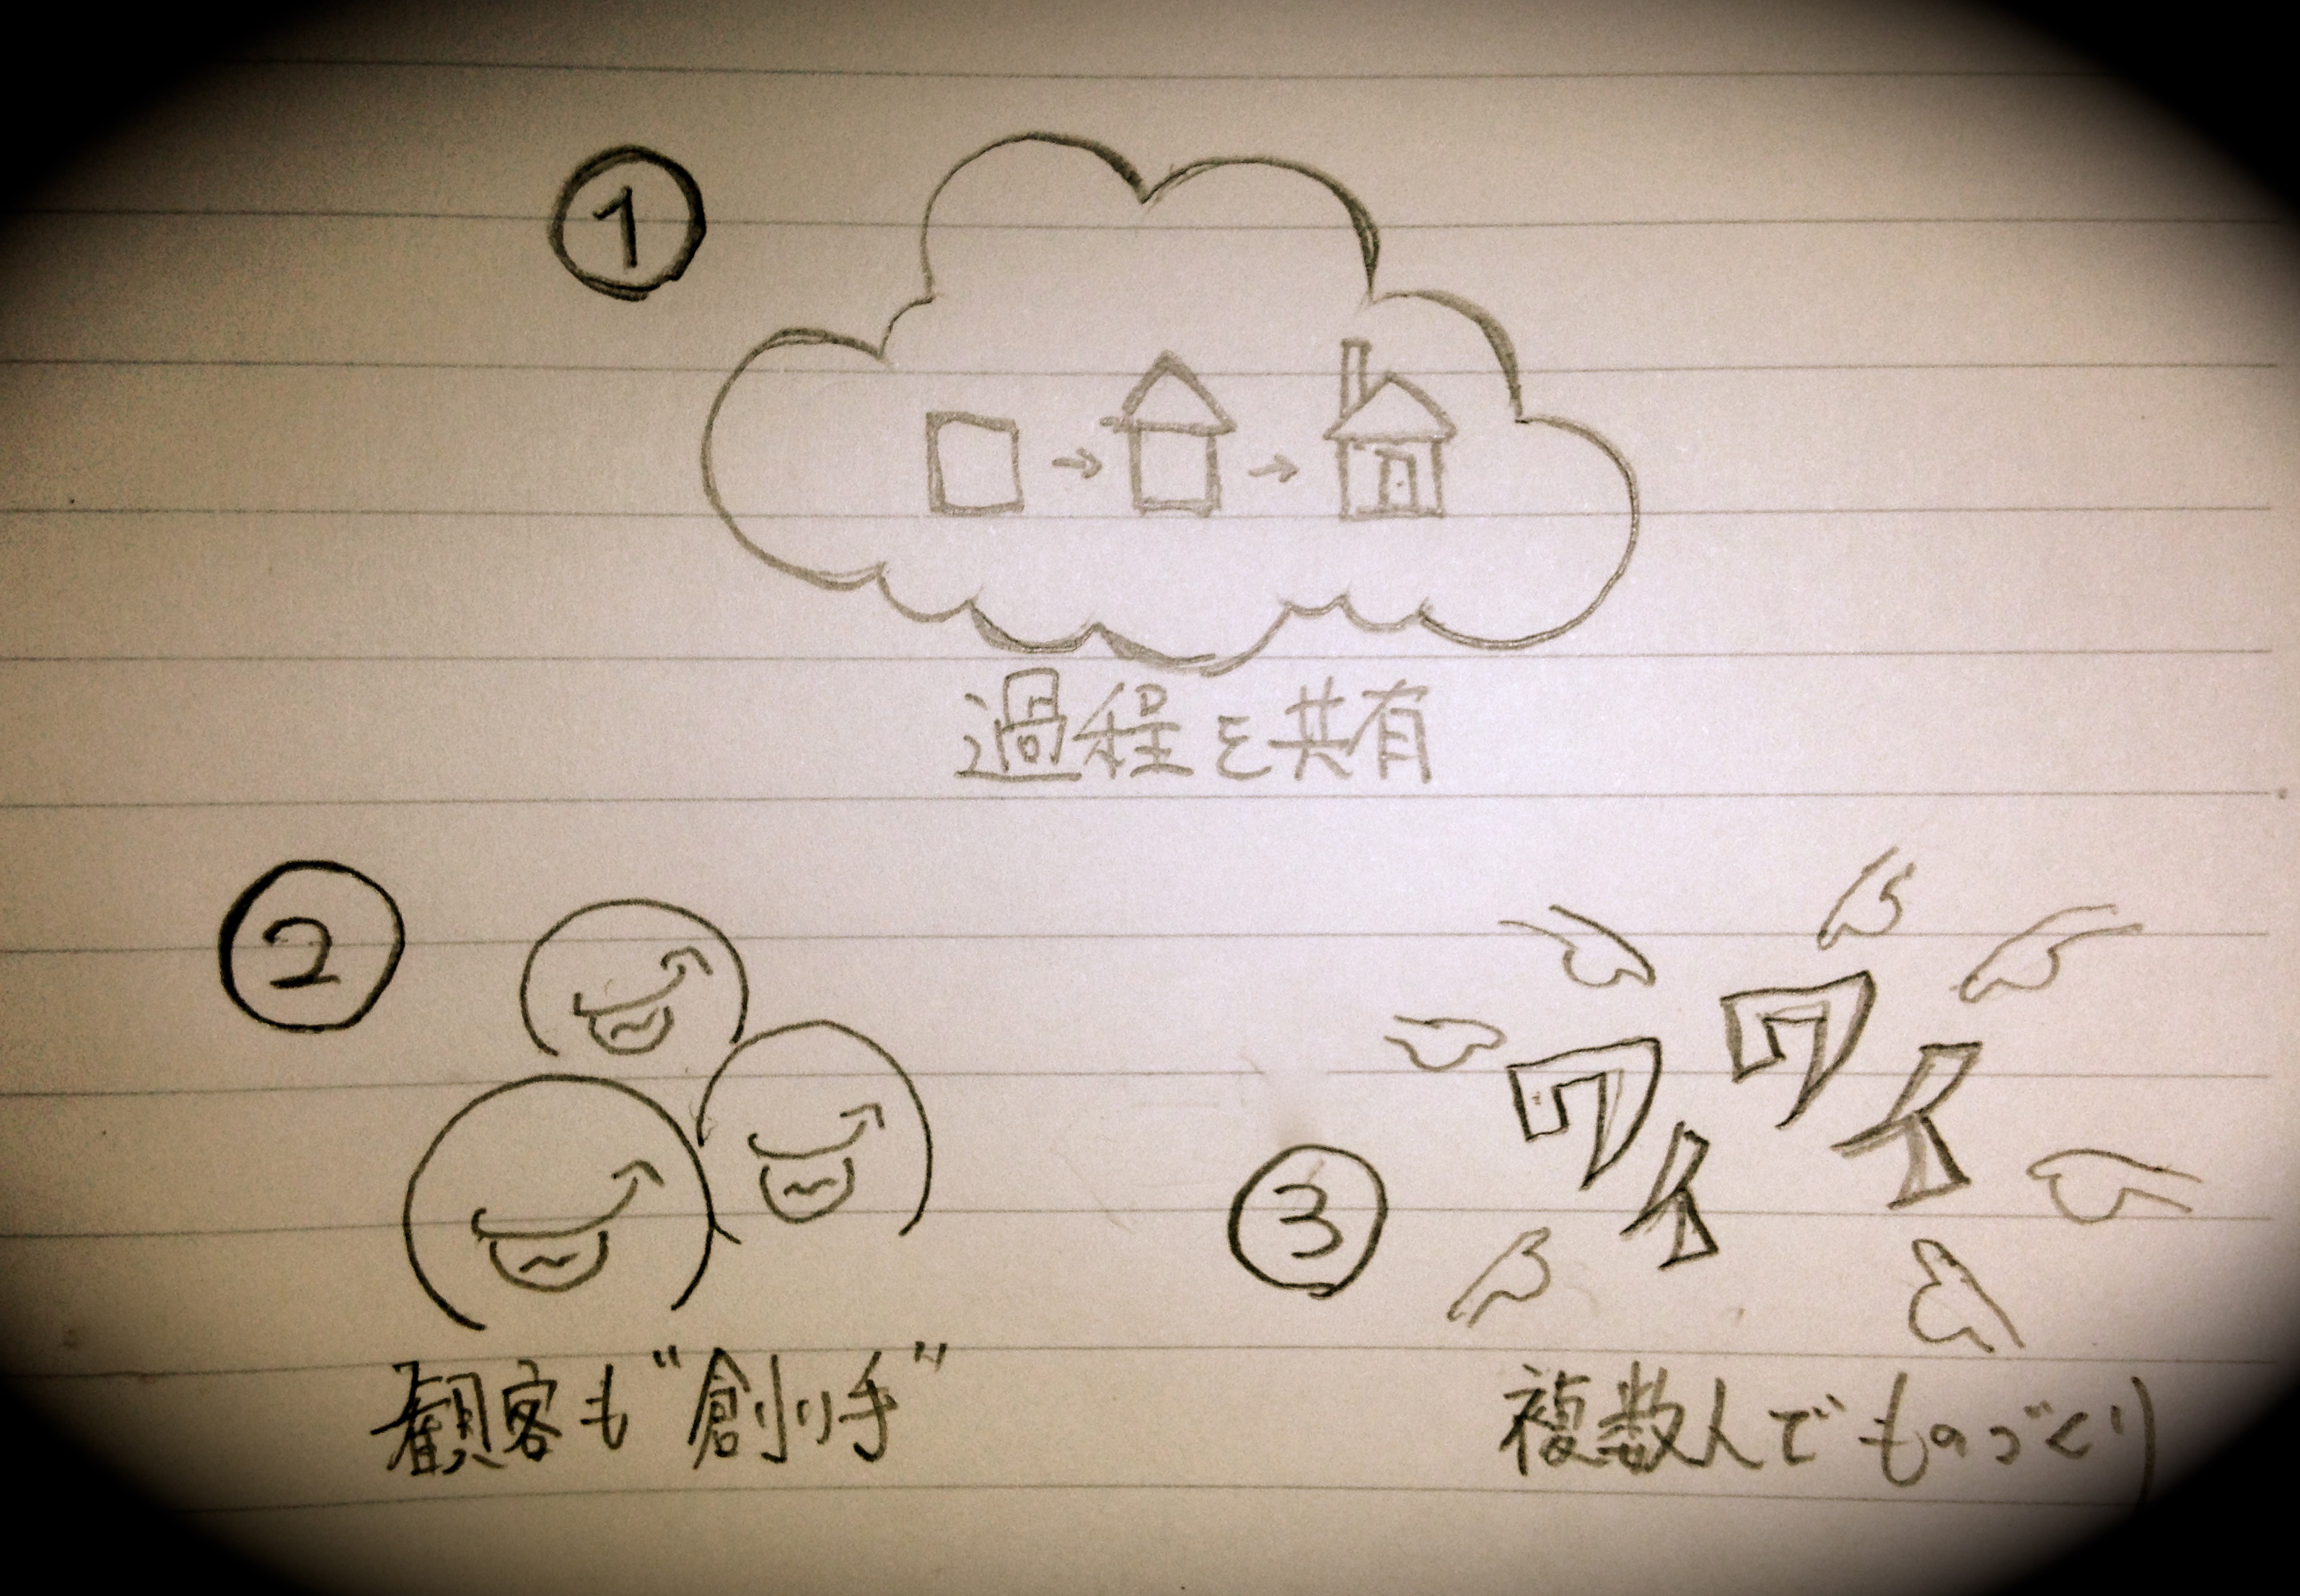 ①
過程を共有
②
観客も“創り手”
③
ワイワイ
複数人でものづくり